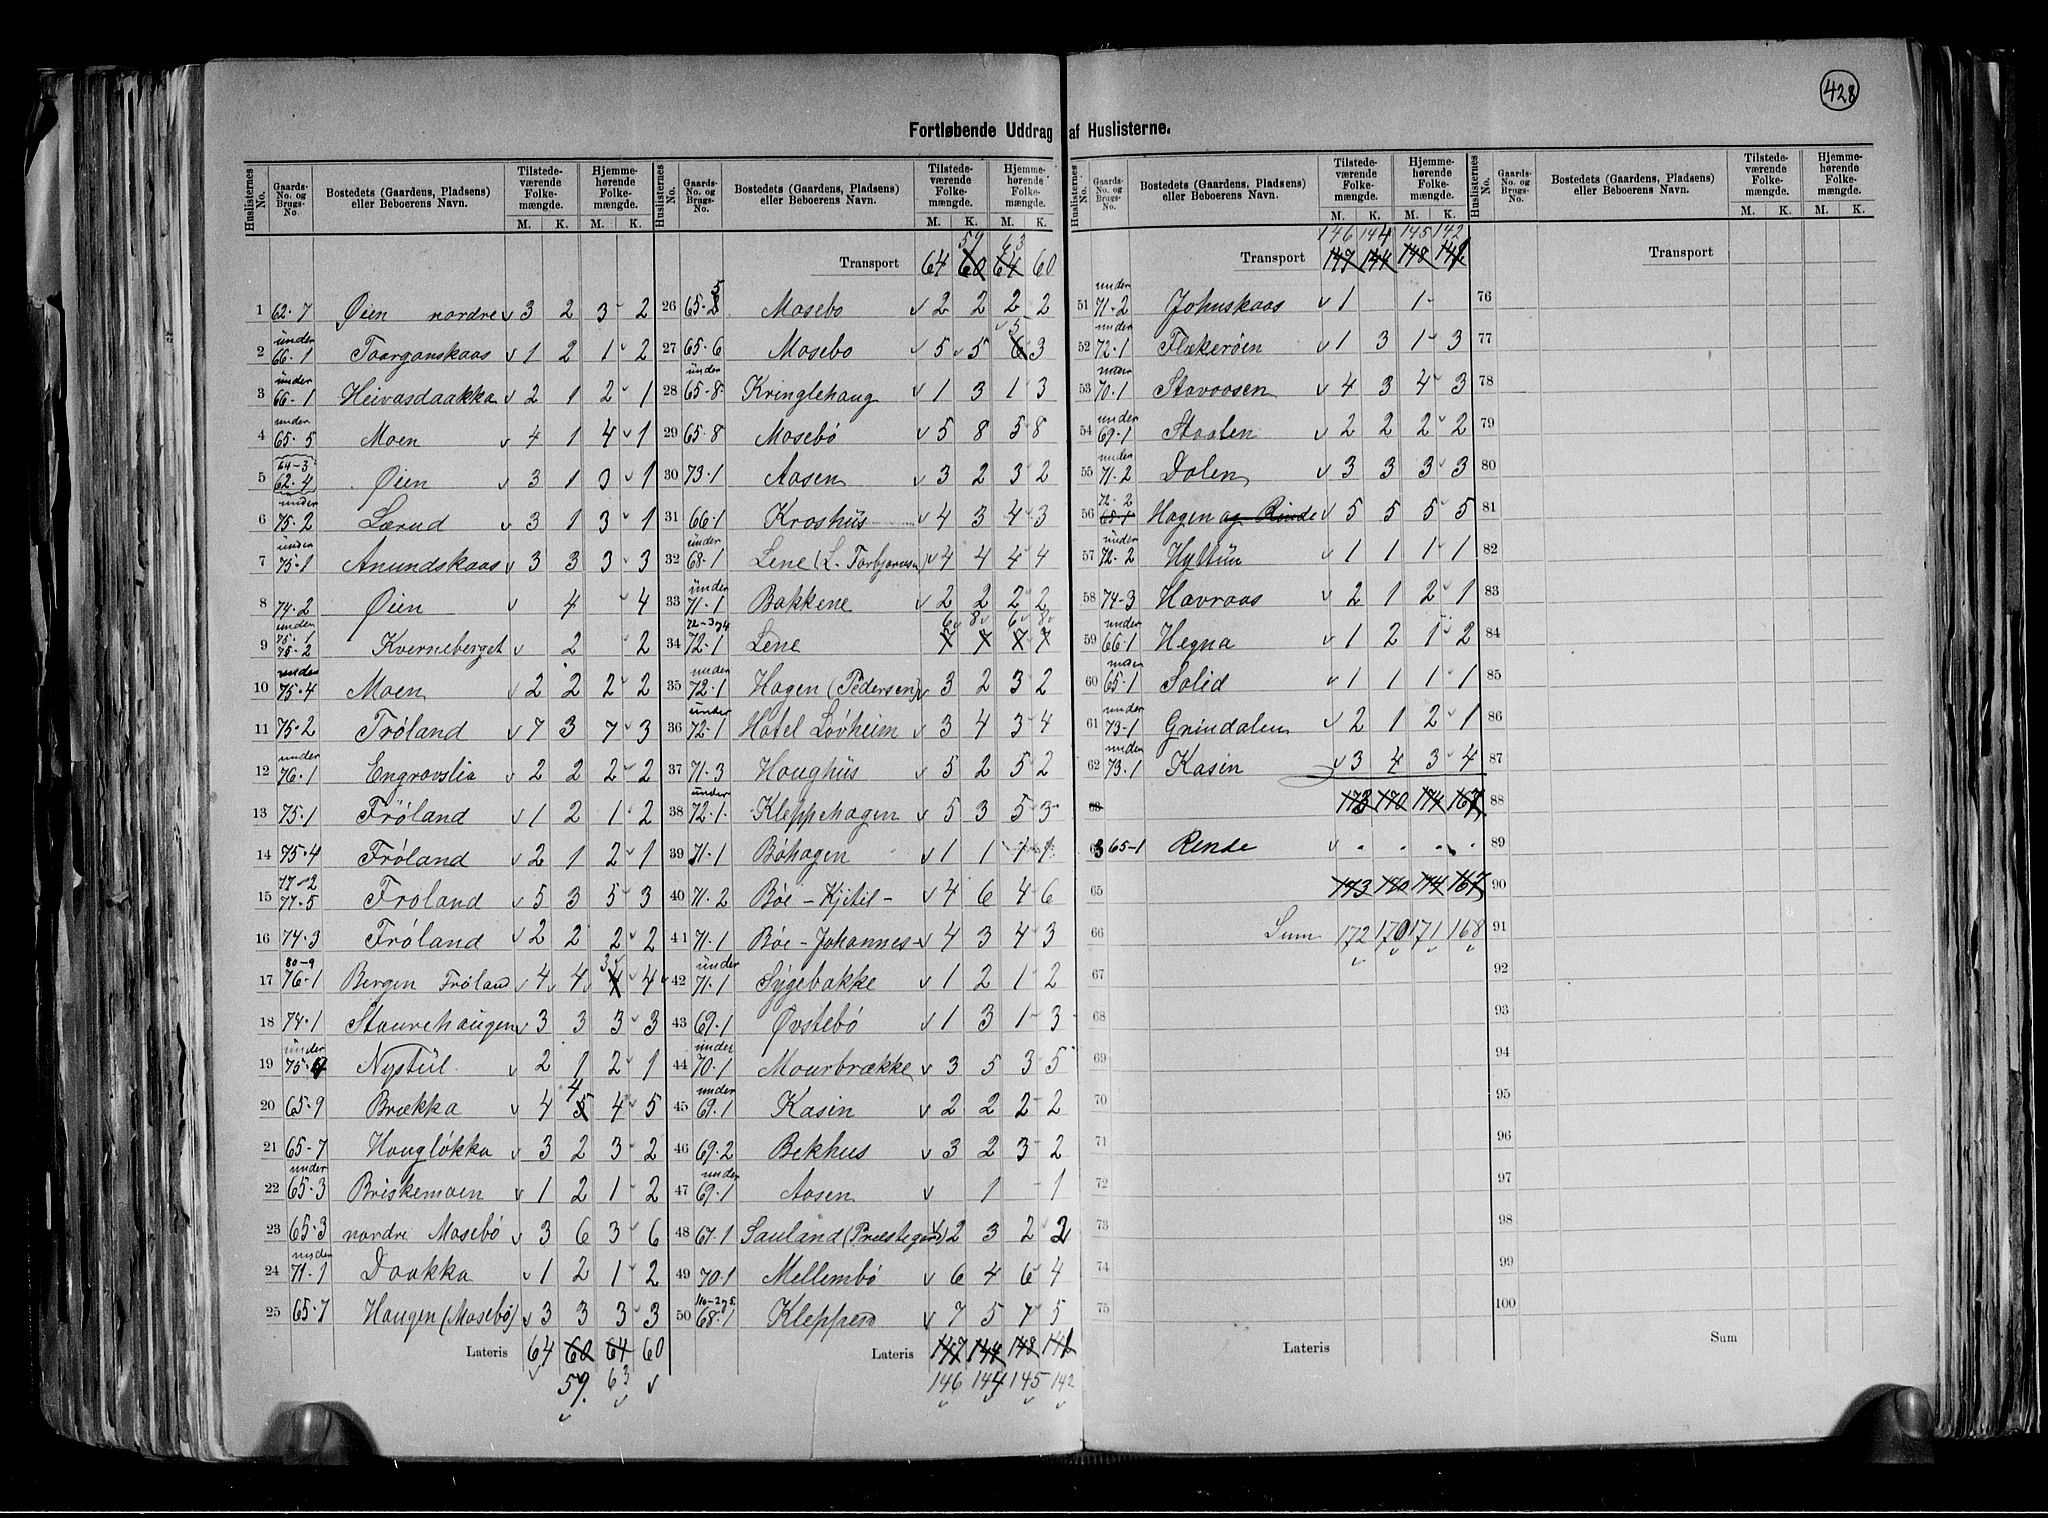 428
Fortløbende Uddrag af Huslisterne.
Huslisternes No. Gaards-No. og Brugs-No. Bostedets (Gaardens, Pladsens) eller Beboerens Navn. Tilstedeværende Folkemængde. M. K. Hjemmehørende Folkemængde. M. K.
1 62-7 Øien nordre v 3 2 3 2
2 under 66-1 Taarganskaas v 1 2 1 2
3 under 66-1 Heivasdaakka v 2 1 2 1
4 under 65-5 Moen v 4 1 4 1
5 64-3 62-4 Øien v 3 1 3 1
6 under 75-2 Lærud v 3 1 3 1
7 under 75-1 Anundskaas v 3 3 3 3
8 74-2 Øien v 4 4
9 under 75-1 75-2 Kverneberget v 2 2
10 under 75-4 Moen v 2 2 2 2
11 75-2 Frøland v 7 3 7 3
12 under 76-1 Engravslia v 2 2 2 2
13 75-1 Frøland v 1 2 1 2
14 75-4 Frøland v 2 1 2 1
15 77-2 77-5 Frøland v 5 3 5 3
16 74-3 Frøland v 2 2 2 2
17 80-9 76-1 Bergen Frøland v 4 4 3 4 4
18 74-1 Staurehaugen v 3 3 3 3
19 under 75-4 Nystül v 2 1 2 1
20 65-9 Brækka v 4 4 5 4 5
21 65-7 Hougløkka v 3 2 3 2
22 under 65-3 Briskemoen v 1 2 1 2
23 65-3 nordre Mosebö v 3 6 3 6
24 under 71-1 Daakka v 1 2 1 2
25 65-7 Haugen (Mosebö) v 3 3 3 3
Lateris 64 60 64 60
59. 63
Huslisternes No. Gaards-No. og Brugs-No. Bostedets (Gaardens, Pladsens) eller Beboerens Navn. Tilstedeværende Folkemængde. M. K. Hjemmehørende Folkemængde. M. K.
59 63
Transport 64 60 64 60
26 65-5 Mosebo v 2 2 2 2
27 65-6 Mosebo v 5 5 5 6 3
28 under 65-8 Kringlehaug v 1 3 1 3
29 65-8 Mosebö v 5 8 5 8
30 73-1 Aasen v 3 2 3 2
31 66-1 Kroshüs v 4 3 4 3
32 under 68-1 Lene (L. Torbjørnsen) v 4 4 4 4
33 under 71-1 Bakkene v 2 2 2 2
6 8 6 8
34 72-3 og 4 72-1 Lene 7 7 7 7
35 under 72-1 Hagen (Pedersen) v 3 2 3 2
36 under 72-1 Hotel Løvheim v 3 4 3 4
37 71-3 Houghüs v 5 2 5 2
38 under 72-1 Kleppehagen v 5 3 5 3
39 71-1 Bøhagen v 1 1 1 1
40 71-2 Bøe - Kjetil - v 4 6 4 6
41 71-1 Bøe - Johannes - v 4 3 4 3
42 under 71-1 Sygebakke v 1 2 1 2
43 69-1 Øvstebö v 1 3 1 3
44 under 70-1 Mourbrække v 3 5 3 5
45 under 69-1 Kasin v 2 2 2 2
46 69-2 Bekhus v 3 2 3 2
47 under 69-1 Aasen v 1 1
48 67-1 Sauland (Præstegård) v 2 3 2 2
49 70-1 Mellembö v 6 4 6 4
50 68-1 Kleppen v 7 5 7 5
Lateris 147 144 148 141
146 144 145 142
Huslisternes No. Gaards-No. og Brugs-No. Bostedets (Gaardens, Pladsens) eller Beboerens Navn. Tilstedeværende Folkemængde. M. K. Hjemmehørende Folkemængde. M. K.
146 144 145 142
Transport 147 144 148 141
51 under 71-2 Johnskaas v 1 1
52 under 72-1 Flekerøien v 1 3 1 3
53 under 70-1 Stavaasen v 4 3 4 3
54 under 69-1 Staalen v 2 2 2 2
55 under 71-2 Dalen v 3 3 3 3
56 72-2 65-1 Hagen og Rinde v 5 5 5 5
57 under 72-2 Hyttün v 1 1 1 1
58 74-3 Havraas v 2 1 2 1
59 under 66-1 Hegna v 1 2 1 2
60 under 65-1 Solid v 1 1 1 1
61 under 73-1 Grindalen v 2 1 2 1
62 under 73-1 Kasin v 3 4 3 4
63 173 170 174 167
63 65-1 Rende v . . . .
65 173 170 174 167
66 Sum 172 170 171 168
67
68
69
70
71
72
73
74
75
Lateris
Huslisternes No. Gaards-No. og Brugs-No. Bostedets (Gaardens, Pladsens) eller Beboerens Navn. Tilstedeværende Folkemængde. M. K. Hjemmehørende Folkemængde. M. K.
Transport
76
77
78
79
80
81
82
83
84
85
86
87
88
89
90
91
92
93
94
95
96
97
98
99
100
Sum